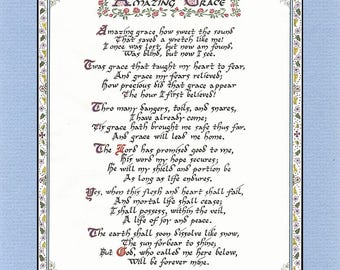 Amazing Grace
Amazing grace how sweet the sound
That saved a wretch like me!
I once was lost, but now am found,
Was blind, but now I see.
Twas grace that taught my heart to fear,
And grace my fears relieved;
How precious did that grace appear
The hour I first believed!
Thro many dangers, toils, and snares,
I have already come;
Tis grace hath brought me safe thus far,
And grace will lead me home.
The Lord has promised good to me,
His word my hope secures;
He will my shield and portion be
As long as life endures.
Yes, when this flesh and heart shall fail,
And mortal life shall cease;
I shall possess, within the veil,
A life of joy and peace.
The earth shall soon dissolve like snow,
The sun forbear to shine;
But God, who called me here below,
Will be forever mine.